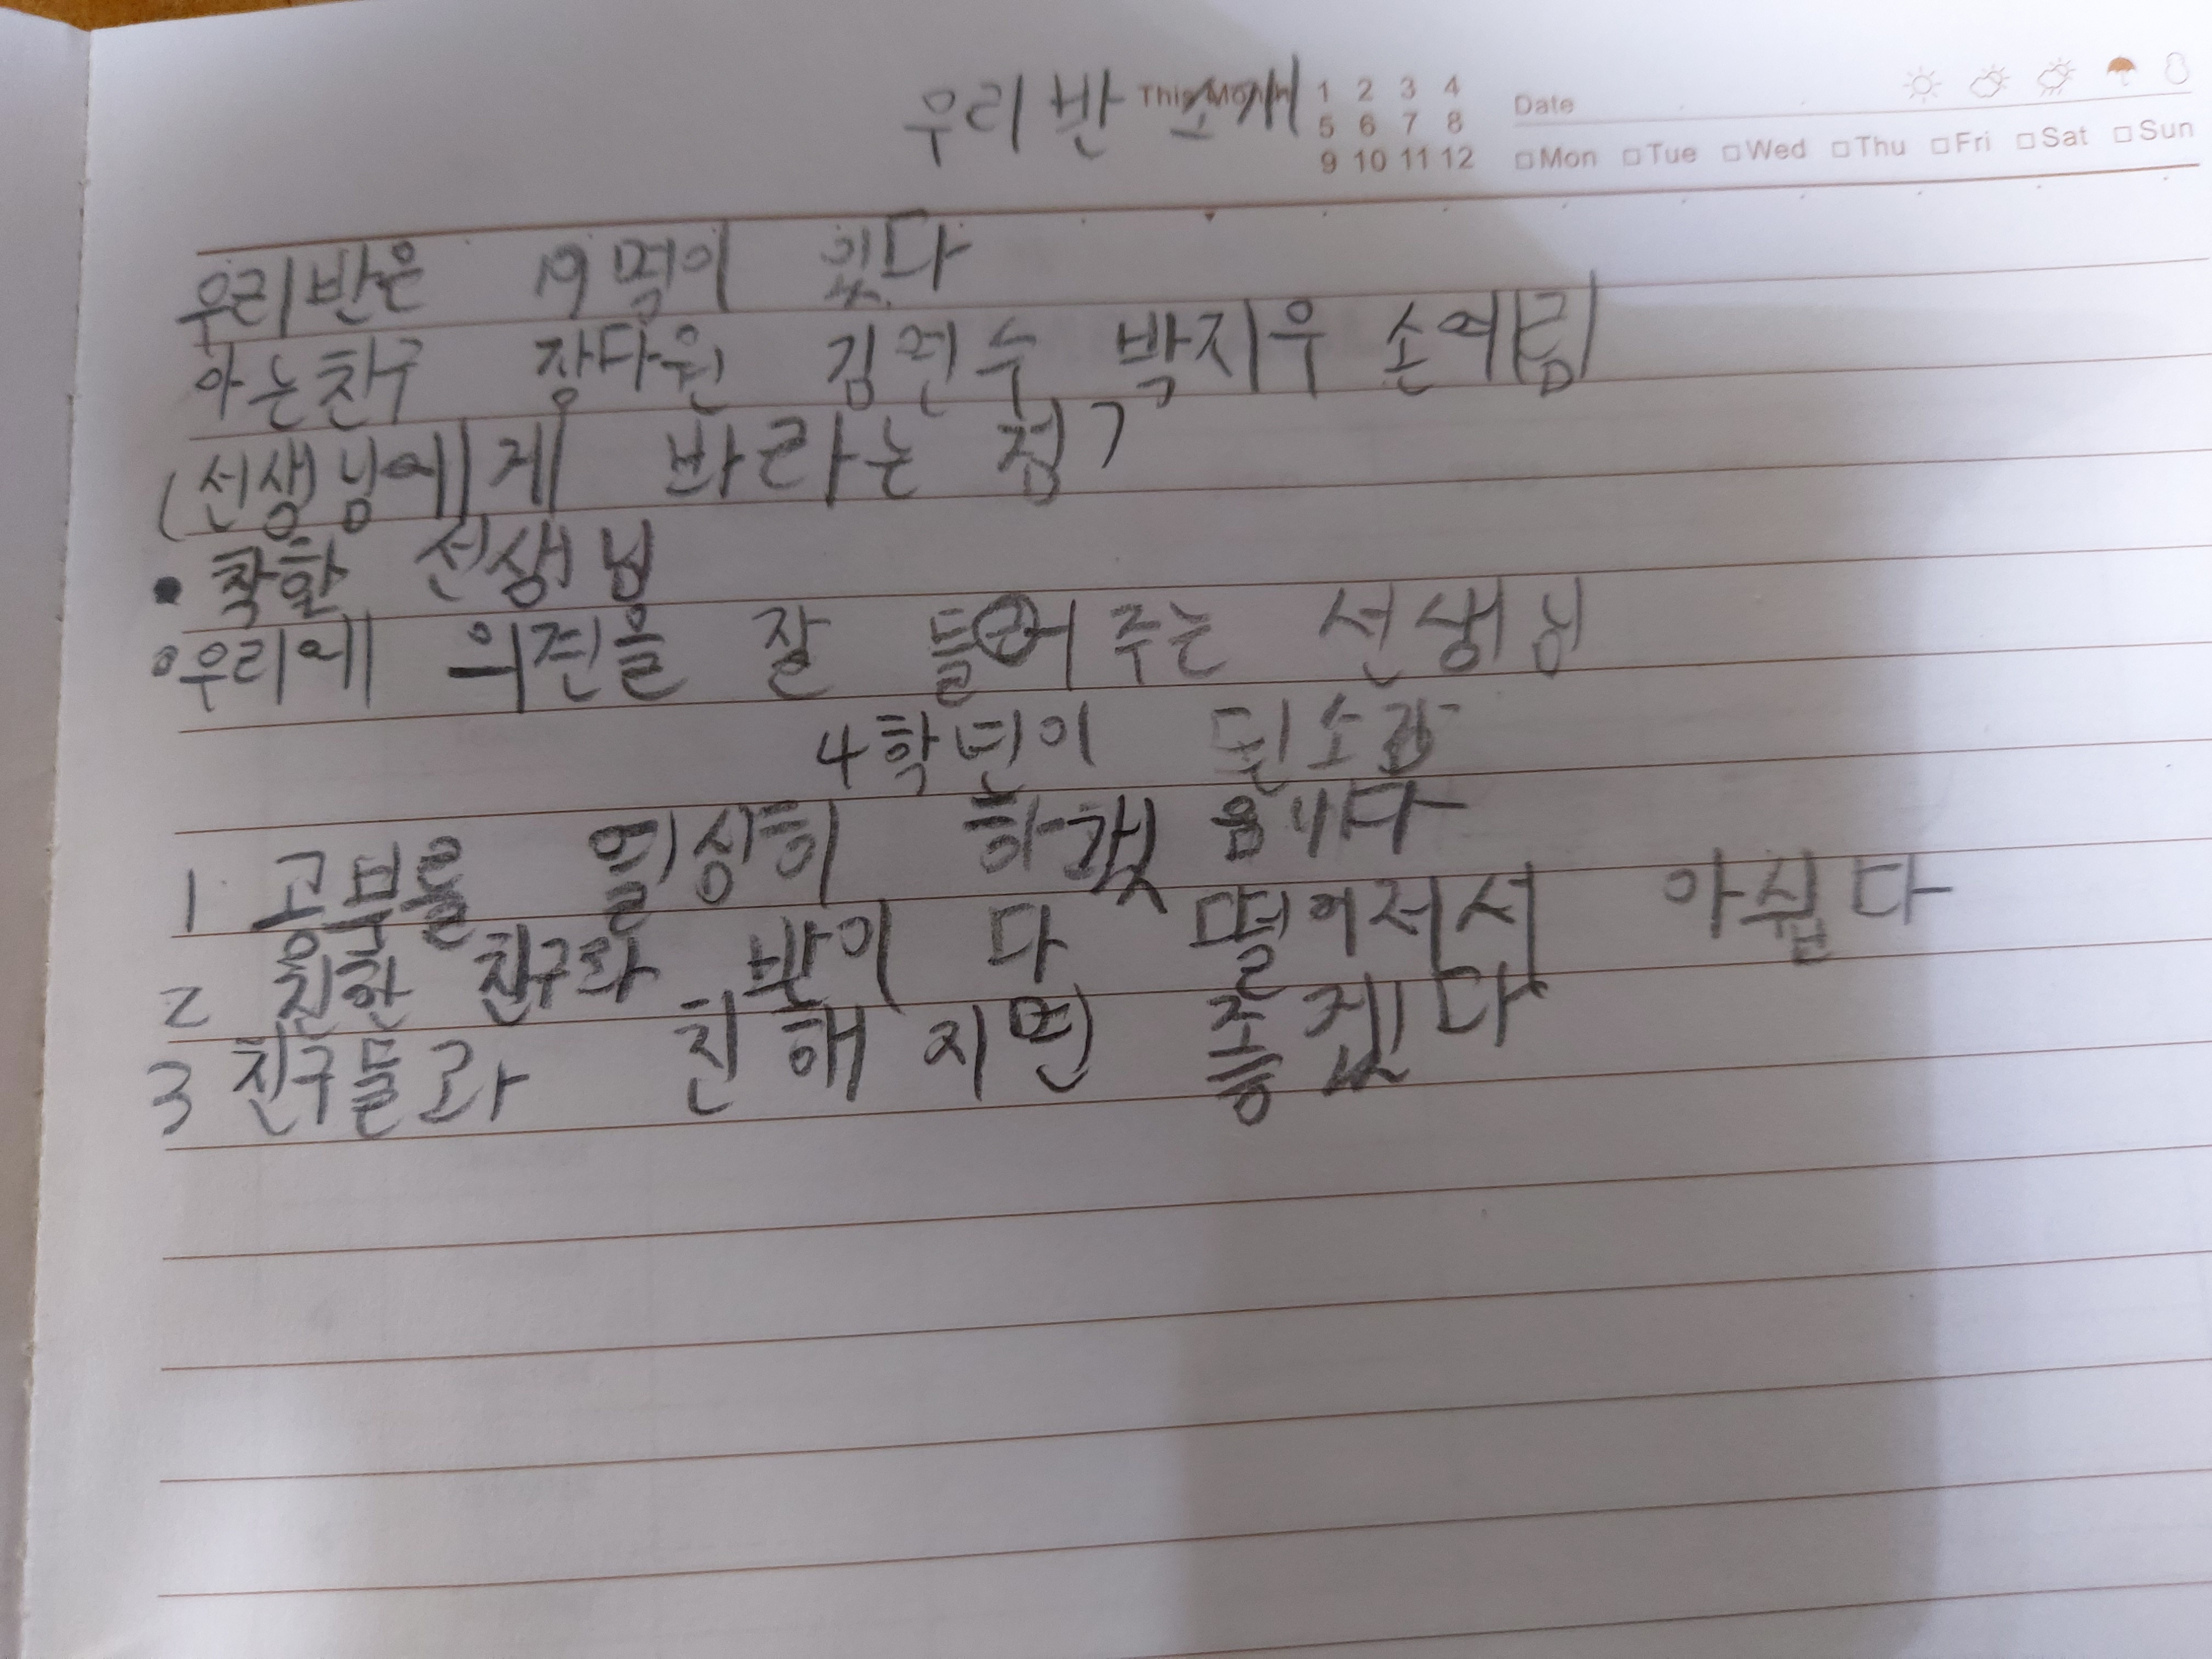 우리 반 소개
This Month 1 2 3 4
5 6 7 8
9 10 11 12
Date
Mon Tue Wed Thu Fri Sat Sun
우리반은 19명이 있다
아는친구 장다원 김연수 박지우 손예림
(선생님에게 바라는 점)
• 착한 선생님
• 우리에 의견을 잘 들어 주는 선생님
4학년이 된소감
1 공부를 열심히 하겠 읍니다
2 친한 친구와 반이 다 떨어저서 아쉽다
3 친구들과 친해 지면 좋겠다